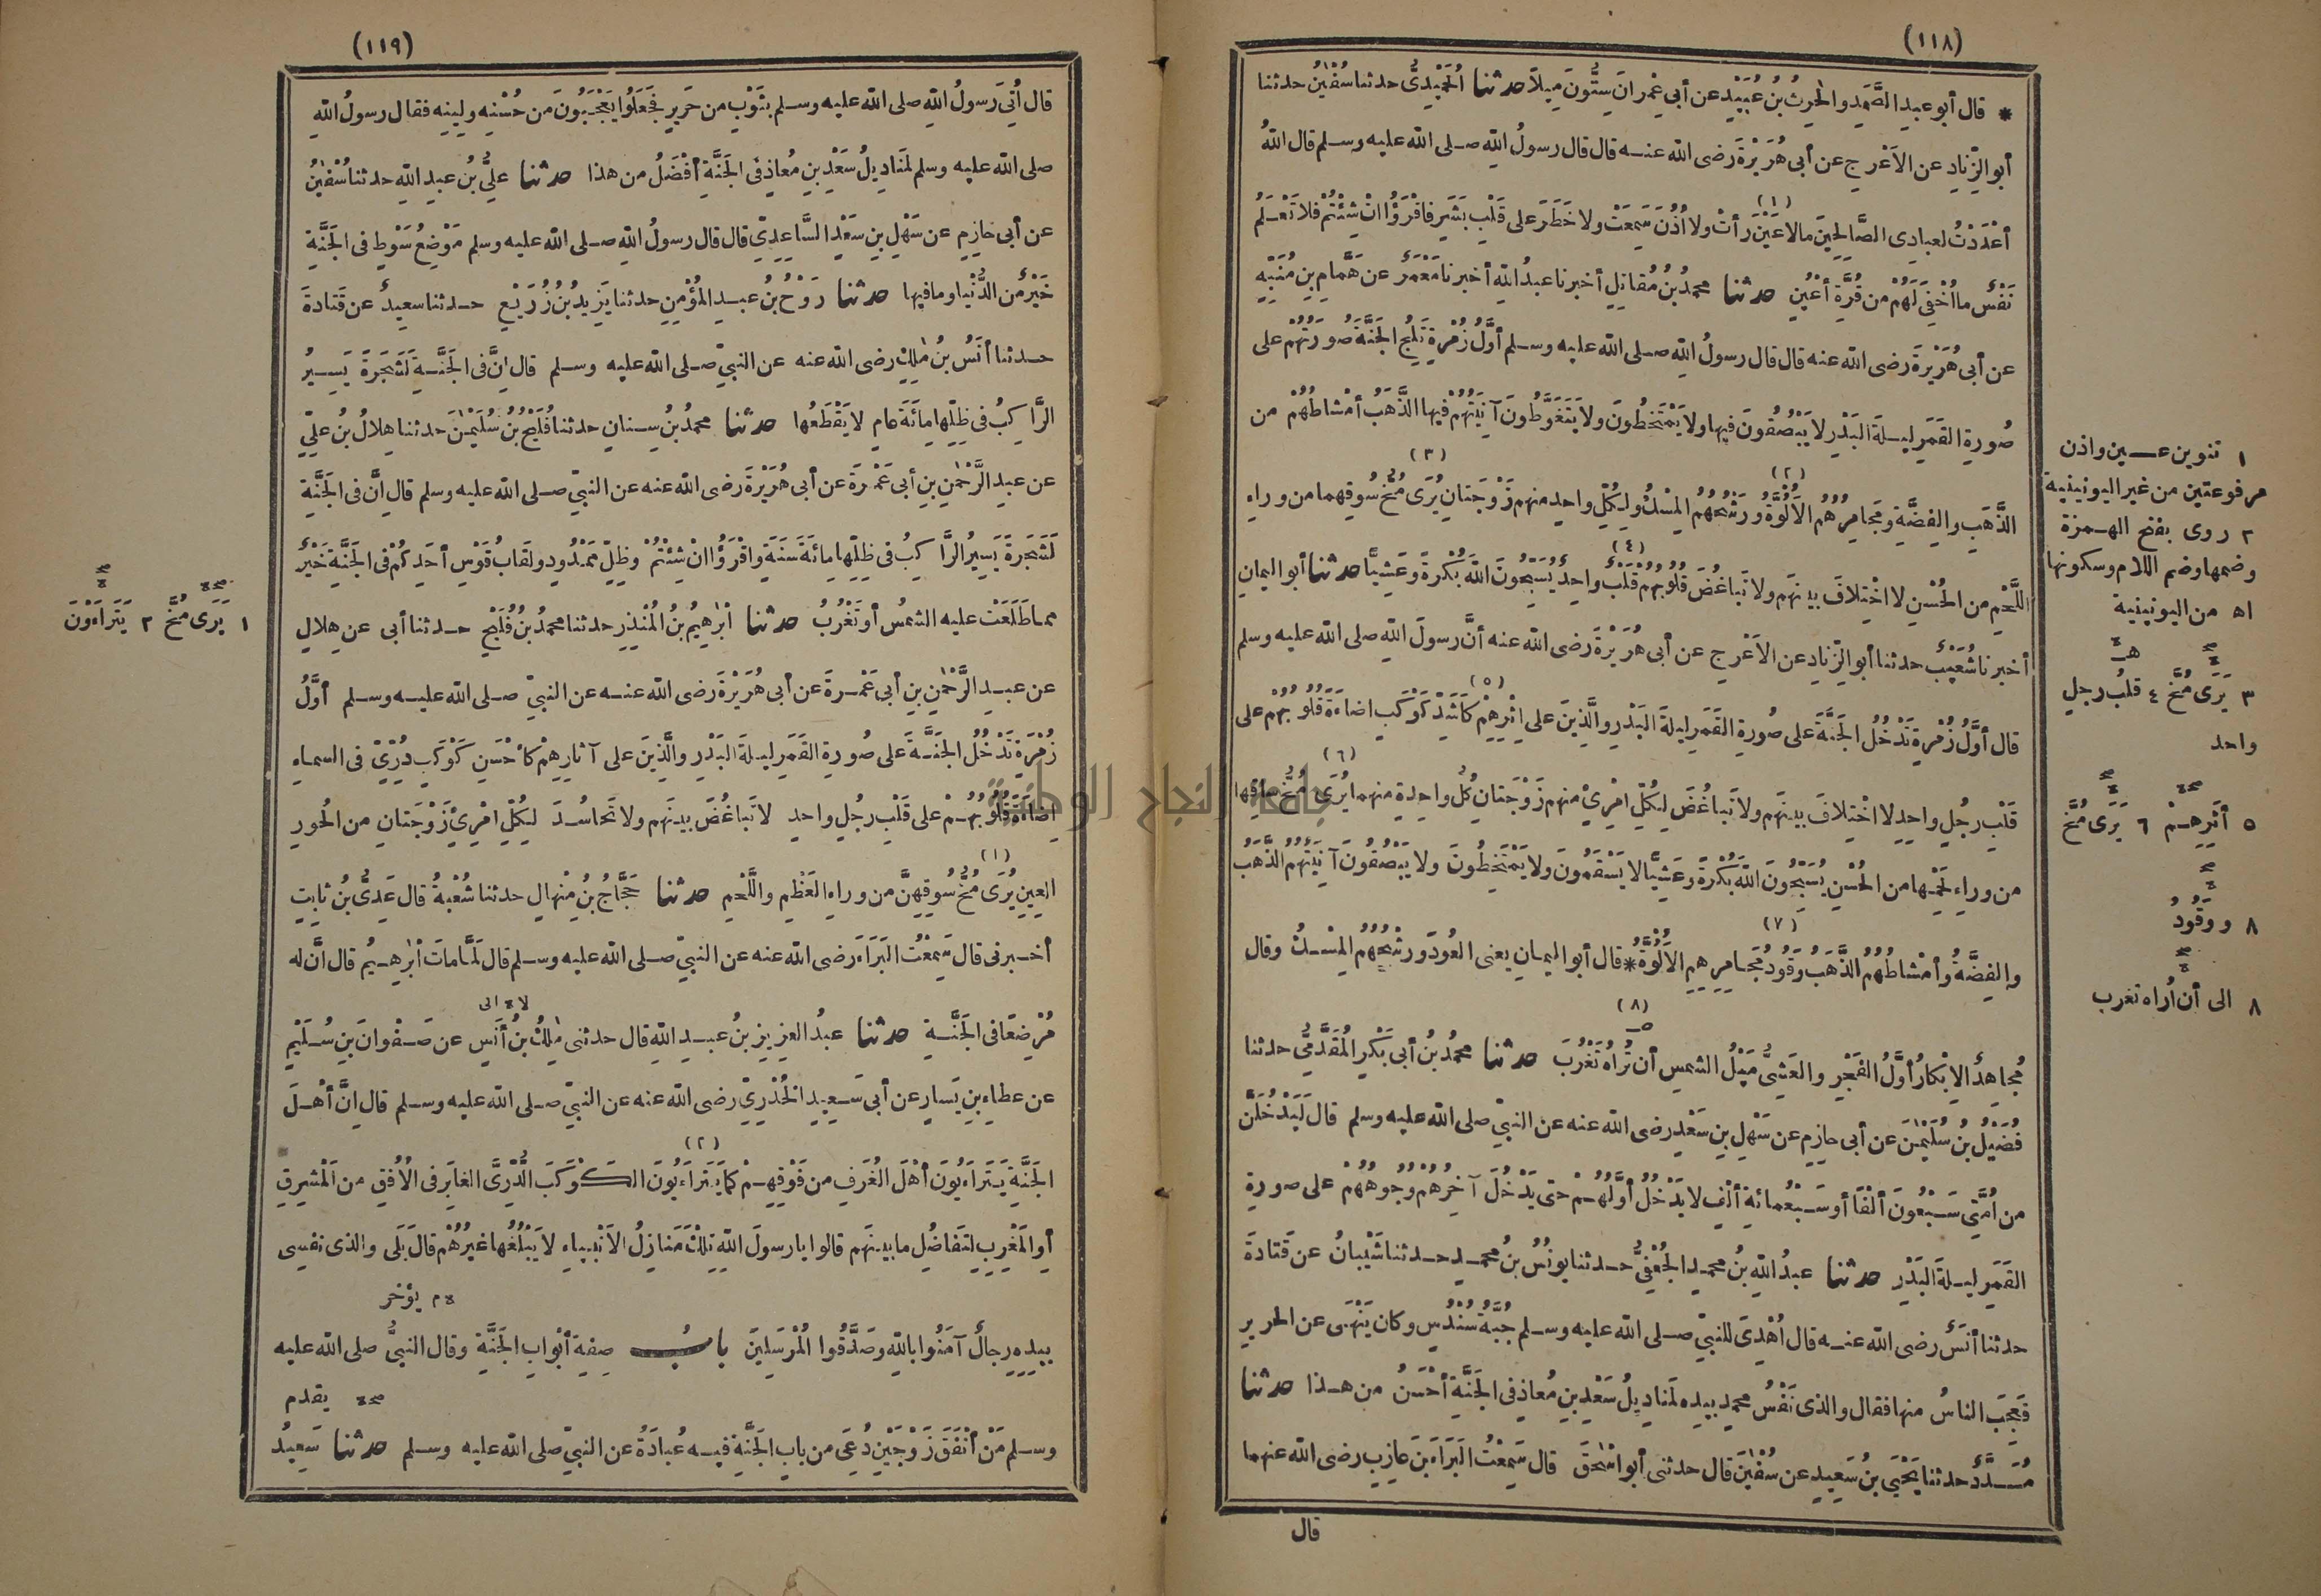 (١١٨)
* قال أبو عبدِ الصَّمَدِ والحٰرِثُ بنُ عُبَيْدٍ عن أبى عِمْرانَ سِتُّونَ مِيلاً حدثنا الحُمَيْدِىُّ حدثنا سُفْيٰنُ حدثنا
أبو الزِّنادِ عن الاَعْرجِ عن أبى هُرَيْرَةَ رضى الله عنه قال قال رسولُ اللهِ صلى الله عليه وسلم قال اللهُ
أعْدَدْتُ لعبادى الصَّالِحِينَ مالا عَيْنَ (١) رَأتْ ولا أُذُنَ سَمِعَتْ ولا خَطَرَ على قَلْبِ بَشَرٍ فاقْرَؤُا انْ شِئْتُمْ فلا تَعْلَمُ
نَفْسٌ ما أُخْفِىَ لَهُمْ من قُرَّةِ أعْيُنٍ حدثنا محمدُ بنُ مُقاتِلٍ أخبرنا عبدُ اللهِ أخبرنا مَعْمَرٌ عن هَمَّامِ بنِ مُنَبِّهٍ
عن أبى هُرَيْرةَ رضى الله عنه قال قال رسولُ اللهِ صلى الله عليه وسلم أوَّلُ زُمْرةٍ تَلِجُ الجَنَّةَ صُورَتُهُمْ على
صُورةِ القَمَرِ ليلةَ البَدْرِ لا يَبْصُقُونَ فيها ولا يَمْتَخِطُونَ ولا يَتَغَوَّطُونَ آنِيَتُهُمْ فيها الذَّهَبُ أمْشاطُهُمْ من
الذَّهَبِ والفِضَّةِ ومَجامِرُهُمُ الاَلُوَّةُ (٢) ورَشْحُهُمُ المِسْكُ ولِكُلِّ واحدٍ منهم زَوْجَتانِ يُرَى مُخُّ (٣) سُوقِهِما من وراءِ
اللَّحْمِ من الحُسْنِ لا اخْتِلافَ بينَهم ولا تَباغُضَ قُلُوبُهمْ قَلْبٌ (٤) واحدٌ يُسَبِّحُونَ اللهَ بُكْرةً وعَشِيًّا حدثنا أبو اليمانِ
أخبرنا شُعَيْبٌ حدثنا أبو الزِّنادِ عن الاَعْرجِ عن أبى هُرَيْرةَ رضى الله عنه أنَّ رسولَ اللهِ صلى الله عليه وسلم
قال أوَّلُ زُمْرةٍ تَدْخُلُ الجَنَّةَ على صُورةِ القَمَرِ ليلةَ البَدْرِ والَّذِينَ على إثْرِهِمْ (٥) كأشَدِّ كَوْكَبٍ اضاءَةً قُلُوبُهُمْ على
قَلْبِ رجُلٍ واحدٍ لا اخْتِلافَ بينَهم ولا تَباغُضَ لِكُلِّ امْرِئٍ منهم زَوْجَتانِ كُلُّ واحِدةٍ منهما يُرَى مُخُّ (٦) ساقِها
من وراءِ لَحْمِها من الحُسْنِ يُسَبِّحُونَ اللهَ بُكْرةً وعَشِيًّا لا يَسْقَمُونَ ولا يَمْتَخِطُونَ ولا يَبْصُقُونَ آنِيَتُهُمُ الذَّهَبُ
والفِضَّةُ وأمْشاطُهُمُ الذَّهَبُ وَقُودُ (٧) مَجامِرِهِمِ الاَلُوَّةُ * قال أبو اليمانِ يعنى العُودَ ورَشْحُهُمُ المِسْكُ وقال
مُجاهِدٌ الاِبْكارُ أوَّلُ الفَجْرِ والعَشِىُّ مَيْلُ الشمسِ أن تُراهُ (٨) تَغْرُبَ حدثنا محمدُ بنُ أبى بَكْرٍ المُقَدَّمِىُّ حدثنا
فُضَيْلُ بنُ سُلَيْمٰنَ عن أبى حازِمٍ عن سَهْلِ بنِ سَعْدٍ رضى الله عنه عن النبىِّ صلى الله عليه وسلم قال لَيَدْخُلَنَّ
من أُمَّتِى سَبْعُونَ ألْفًا أو سَبْعُمائةِ ألْفٍ لا يَدْخُلُ أوَّلُهُمْ حتى يَدْخُلَ آخِرُهُمْ وُجُوهُهُمْ على صورةِ
القَمَرِ ليلةَ البَدْرِ حدثنا عبدُ اللهِ بنُ محمدٍ الجُعْفِىُّ حدثنا يونُسُ بنُ محمدٍ حدثنا شَيْبانُ عن قَتادةَ
حدثنا أنَسٌ رضى الله عنه قال أُهْدِىَ للنبىِّ صلى الله عليه وسلم جُبَّةُ سُنْدُسٍ وكان يَنْهَى عن الحريرِ
فَعَجِبَ الناسُ منها فقال والذى نَفْسُ محمدٍ بيدِه لَمَنادِيلُ سَعْدِ بنِ مُعاذٍ فى الجَنَّةِ أحْسَنُ من هذا حدثنا
مُسَدَّدٌ حدثنا يَحْيَى بنُ سَعِيدٍ عن سُفْيٰنَ قال حدثنى أبو اسْحٰقَ قال سَمِعْتُ البَراءَ بنَ عازِبٍ رضى الله عنهما
قال
١ تنوين عين واذن
مرفوعتين من غير اليونينية
٢ روى بفتح الهمزة
وضمها وضم اللام وسكونها
اه من اليونينية
٣ يَرَى مُخَّ ٤ قلبُ رجلٍ
واحد
٥ أَثَرِهِمْ ٦ يَرَى مُخَّ
٨ ووَقُودُ
٨ الى أن أُراه تغرب
(١١٩)
قال أُتِىَ رسولُ اللهِ صلى الله عليه وسلم بثَوْبٍ من حَرِيرٍ فَجَعَلُوا يَعْجَبُونَ من حُسْنِه ولِينِه فقال رسولُ اللهِ
صلى الله عليه وسلم لَمَنادِيلُ سَعْدِ بنِ مُعاذٍ فى الجَنَّةِ أفْضَلُ من هذا حدثنا علىُّ بنُ عبدِ اللهِ حدثنا سُفْيٰنُ
عن أبى حازِمٍ عن سَهْلِ بنِ سَعْدٍ السَّاعِدِىِّ قال قال رسولُ اللهِ صلى الله عليه وسلم مَوْضِعُ سَوْطٍ فى الجَنَّةِ
خَيْرٌ من الدُّنْيا وما فيها حدثنا رَوْحُ بنُ عبدِ المُؤْمِنِ حدثنا يَزِيدُ بنُ زُرَيْعٍ حدثنا سعيدٌ عن قَتادةَ
حدثنا أنَسُ بنُ مٰلِكٍ رضى الله عنه عن النبىِّ صلى الله عليه وسلم قال إنَّ فى الجَنَّةِ لَشَجَرةً يَسِيرُ
الرَّاكِبُ فى ظِلِّها مِائَةَ عامٍ لا يَقْطَعُها حدثنا محمدُ بنُ سِنانٍ حدثنا فُلَيْحُ بنُ سُلَيْمٰنَ حدثنا هِلالُ بنُ علِىٍّ
عن عبدِ الرَّحْمٰنِ بنِ أبى عَمْرَةَ عن أبى هُرَيْرةَ رضى الله عنه عن النبىِّ صلى الله عليه وسلم قال إنَّ فى الجَنَّةِ
لَشَجَرةً يَسِيرُ الرَّاكِبُ فى ظِلِّها مائَةَ سَنَةٍ واقْرَؤُا انْ شِئْتُمْ وظِلٍّ مَمْدُودٍ ولَقابُ قَوْسِ أحَدِكُمْ فى الجَنَّةِ خَيْرٌ
مما طَلَعَتْ عليه الشمسُ أو تَغْرُبُ حدثنا ابْرٰهيمُ بنُ المُنْذِرِ حدثنا محمدُ بنُ فُلَيْحٍ حدثنا أبى عن هِلالٍ
عن عبدِ الرَّحْمٰنِ بنِ أبى عَمْرةَ عن أبى هُرَيْرةَ رضى الله عنه عن النبىِّ صلى الله عليه وسلم أوَّلُ
زُمْرةٍ تَدْخُلُ الجَنَّةَ على صُورةِ القَمَرِ ليلةَ البَدْرِ والَّذِينَ على آثارِهِمْ كأحْسَنِ كَوْكَبٍ دُرِّىٍّ فى السماءِ
اضاءَةً قُلُوبُهُمْ على قَلْبِ رجُلٍ واحدٍ لا تَباغُضَ بينَهم ولا تَحاسُدَ لِكُلِّ امْرِئٍ زَوْجَتانِ من الحُورِ
العِينِ يُرَى مُخُّ (١) سُوقِهِنَّ من وراءِ العَظْمِ واللَّحْمِ حدثنا حَجَّاجُ بنُ مِنْهالٍ حدثنا شُعْبةُ قال عَدِىُّ بنُ ثابِتٍ
أخبرنى قال سَمِعْتُ البَراءَ رضى الله عنه عن النبىِّ صلى الله عليه وسلم قال لَمَّا ماتَ ابْرٰهيمُ قال إنَّ له
مُرْضِعًا فى الجَنَّةِ حدثنا عبدُ العزيزِ بنُ عبدِ اللهِ قال حدثنى مٰلِكُ بنُ أنَسٍ عن صَفْوانَ بنِ سُلَيْمٍ
عن عطاءِ بنِ يَسارٍ عن أبى سَعِيدٍ الخُدْرِىِّ رضى الله عنه عن النبىِّ صلى الله عليه وسلم قال إنَّ أهْلَ
الجَنَّةِ يَتَراءَيُونَ أهْلَ الغُرَفِ من فَوْقِهِمْ كما يَتَراءَيُونَ (٢) الكَوْكَبَ الدُّرِّىَّ الغابِرَ فى الاُفُقِ من المَشْرِقِ
أو المَغْرِبِ لِتَفاضُلِ ما بينَهم قالوا يا رسولَ اللهِ تِلْكَ مَنازِلُ الاَنْبِياءِ لا يَبْلُغُها غيرُهُمْ قال بَلَى والذى نفسى
بيدِهِ رجالٌ آمَنُوا باللهِ وصَدَّقُوا المُرْسَلِينَ بابُ صِفةِ أبْوابِ الجَنَّةِ وقال النبىُّ صلى الله عليه
وسلم مَنْ أنْفَقَ زَوْجَيْنِ دُعِىَ من بابِ الجَنَّةِ فيه عُبادَةُ عن النبىِّ صلى الله عليه وسلم حدثنا سَعِيدُ
لا ه الى
يؤخر
يقدم
١ يَرَى مُخَّ ٢ يَتَراءَوْنَ
جامعة النجاح الوطنية